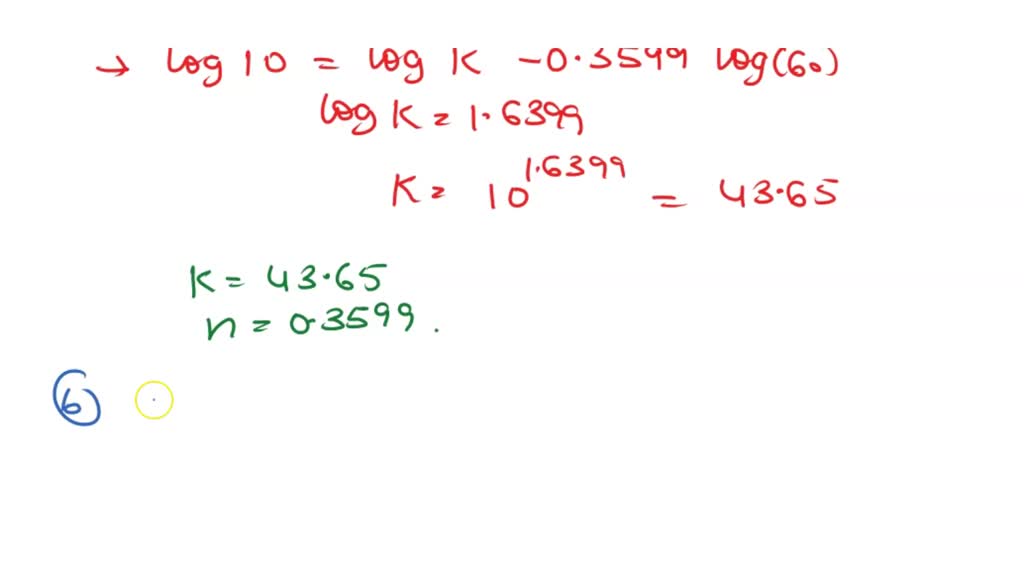 → log 10 = log K - 0.3599 log(60)
log K = 1.6399
K = 10^1.6399 = 43.65
K = 43.65
n = 0.3599 .
6